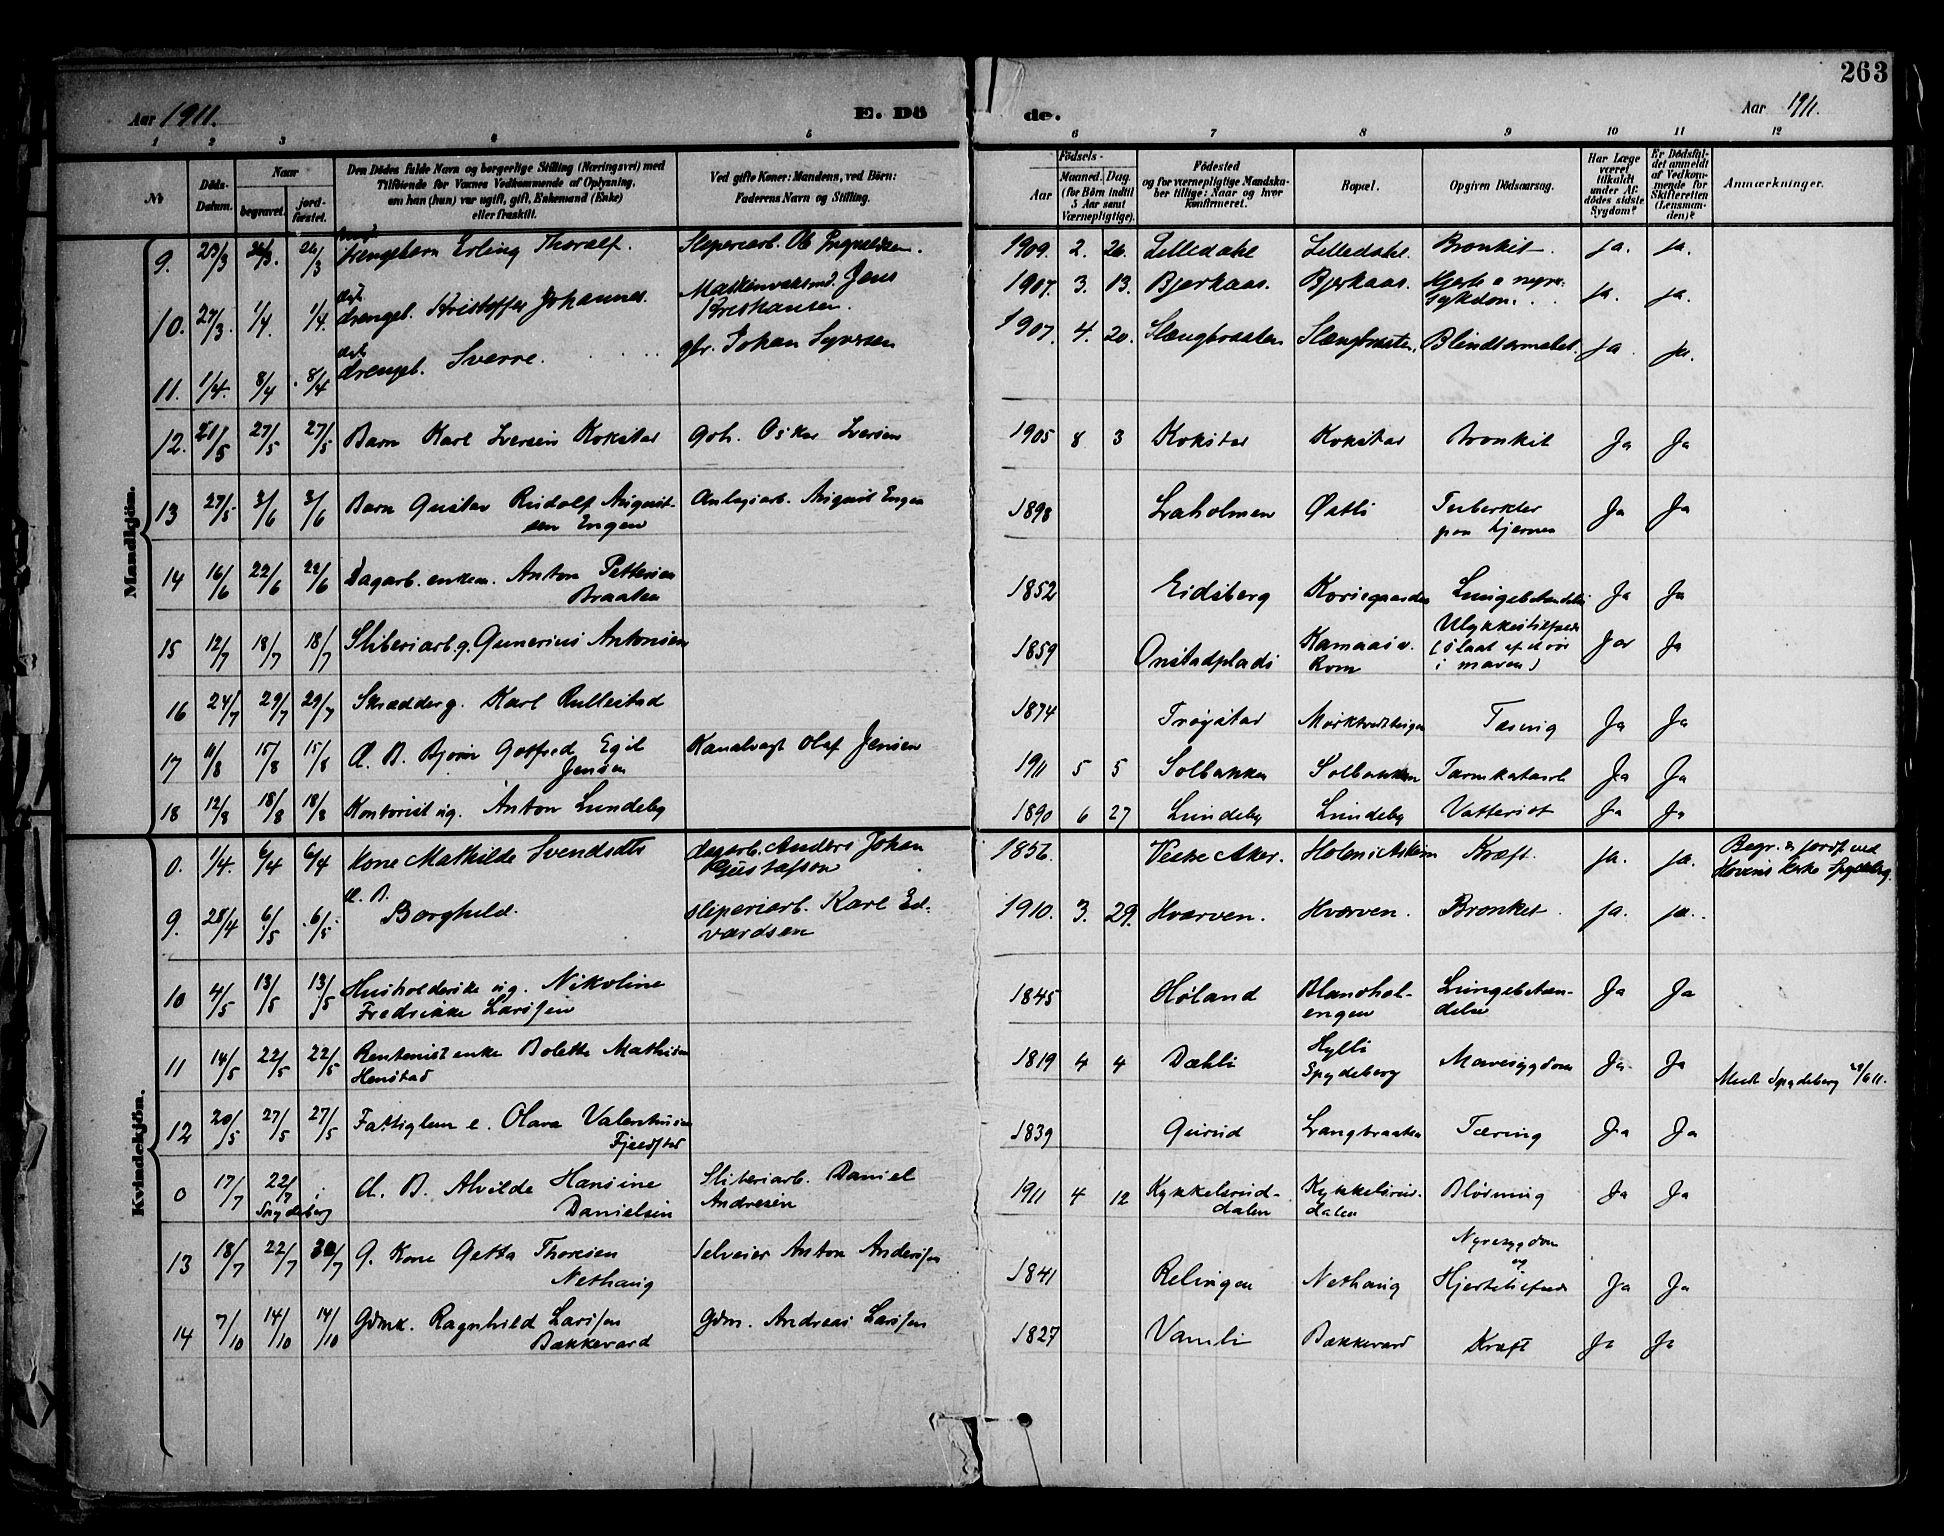 263
Aar 1911. E. Dö de. Aar 1911.
1 2 3 4 5 6 7 8 9 10 11 12
№ Döds-Datum. Naar begravet. jord-fæstet. Den Dödes fulde Navn og borgerlige Stilling (Næringsvei) med Tilföiende for Voxnes Vedkommende af Oplysning, om han (hun) var ugift, gift, Enkemand (Enke) eller fraskilt. Ved gifte Koner: Mandens, ved Börn: Faderens Navn og Stilling. Födsels- Aar Maaned. Dag. (for Börn indtil 5 Aar samt Værnepligtige). Födested og for værnepligtige Mandska-ber tillige: Naar og hvor konfirmeret. Bopæl. Opgiven Dödsaarsag. Har Læge været tilkaldt under Af-dödes sidste Sygdom? Er Dödsfal-det anmeldt af Vedkom-mende for Skifteretten (Lensman-den)? Anmærkninger.
Mandkjön.
9. 23/3 26/3. 26/3 drengebarn Erling Thoralf. Sliperiarb. Ole 1909. 2. 26. Lilledahl Lilledahl. Bronkit. ja. ja.
10. 27/3. 1/4. 1/4. drengeb. Kristoffer Johannes. Jens Kristiansen. 1907. 3. 13. Bjerkaas. Bjerkaas. Hjerte o nyre-sykdom. ja. ja.
11. 1/4. 8/4 8/4 drengeb. Sverre. gbr. Johan Syversen 1907. 4. 20. Slængbraaten Slængbraaten. Blindtarmabet. ja. ja.
12. 21/5 27/5 27/5 Barn Karl Iversen Kokstad Oskar Iversen 1905 8 3 Kokstad Kokstad Bronkit Ja Ja
13 27/5 3/6 3/6 Barn Gustav Rudolf August-sen Engen Anlegsarb. August Engen 1898 Østli Tuberkler paa hjernen Ja Ja
14 16/6 22/6 22/6 Dagarb. enkem. Anton Pettersen Braaten 1852 Eidsberg Korsegaarden Lungebetændelse Ja Ja
15 12/7 18/7 18/7 Sliberiarb. g. Gunerius Antonsen 1859 Onstadplads Kamaas v. Rom Ulykkestilfælde (slaat af et rør i maven) Ja Ja
16 24/7 29/7 29/7 Skrædder g. Karl Rullestad 1874 Trøgstad Tæring Ja Ja
17 11/8 15/8 15/8 Æ. B. Bjorn Gotfred Egil Jensen Kanalvagt Olaf Jensen 1911 5 5 Solbakken Solbakken Tarmkatarrh Ja Ja
18 12/8 18/8 18/8 Kontorist ug. Anton Lundeby 1890 6 27 Lundeby Lundeby Vattersot Ja Ja
Kvindekjön.
0. 1/4. 6/4 6/4 Kone Mathilde Svendsdtr dagarb. Anders Johan Gustafson 1856. Vestre Aker. Holen i Askim Kræft. ja. ja. Begr. & jordf. ved Hovins Kirke Spydeberg.
9. 28/4 6/5 6/5. Æ. B. Borghild. sliperiarb. Karl Ed-vardsen 1910. 3. 29. Hværven. Hværven. Bronkit. ja. ja.
10 4/5 13/5 13/5 Husholderske ug. Nikoline Fredrikke Larssen 1845 Høland Lungebetæn-delse Ja Ja
11 14/5 22/5 22/5 Rentenist enke Bolette Mathisen Henstad 1819 4 4 Dæhli Hylli Spydeberg Mavesygdom Ja Ja Medt. Spydeberg
12 20/5 27/5 27/5 Fattiglem e. Olava Valentinsen 1839 Gurud Langbraaten Tæring Ja Ja
0 17/7 22/7 Spydeberg Æ. B. Alvilde Hansine Danielsen Sliberiarb. Daniel Andresen 1911 4 12 Kykkelsrud-dalen Kykkelsrud-dalen Blødning Ja Ja
13 18/7 22/7 30/7 G. Kone Getta Thoresen Nethaug Selveier Anton Anderssen 1841 Relingen Nethaug Nyresygdom og Hjertetilfælde Ja Ja
14 7/10 14/10 14/10 Gdmk. Ragnhild Larssen Bækkevard Gdm. Andreas Larssen 1827 Vamli Bækkevard Kræft Ja Ja